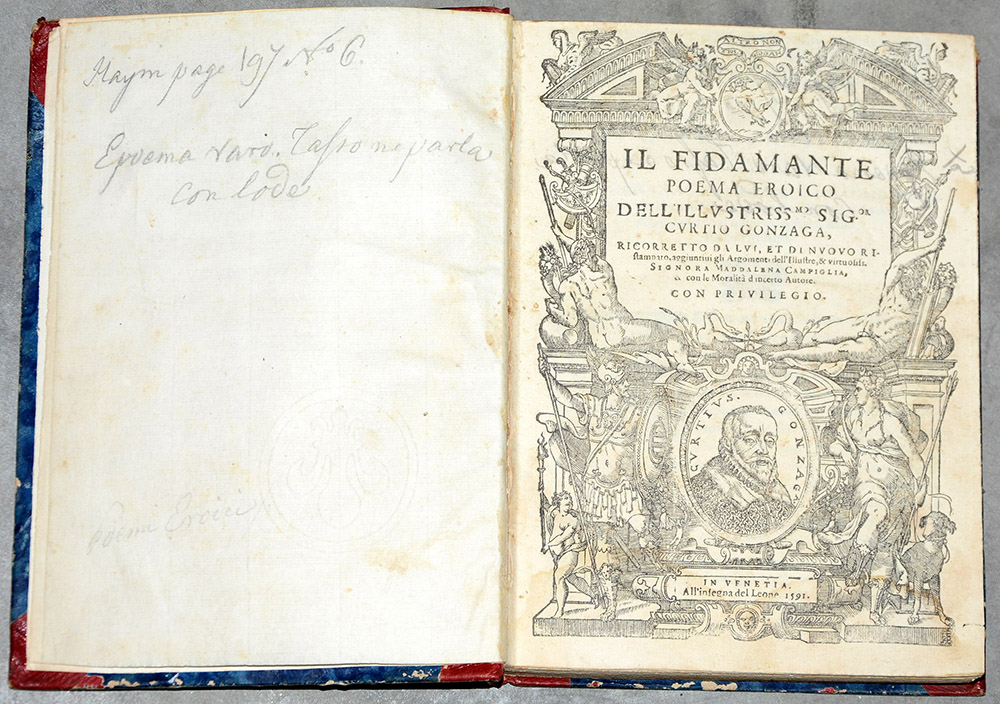 Haym page 197 No 6.
Epoema raro. Tasso ne parla
con lode
Poemi Eroici
IL FIDAMANTE
POEMA EROICO
DELL'ILLVSTRISS.MO SIG.OR
CVRTIO GONZAGA,
RICORRETTO DA LVI, ET DI NVOVO RI-
stampato, aggiuntiui gli Argomenti dell'Illustre, & virtuosiss.
SIGNORA MADDALENA CAMPIGLIA,
& con le Moralità d'incerto Autore.
CON PRIVILEGIO.
CVRTIVS. GONZAGA
IN VENETIA.
All'insegna del Leone 1591.